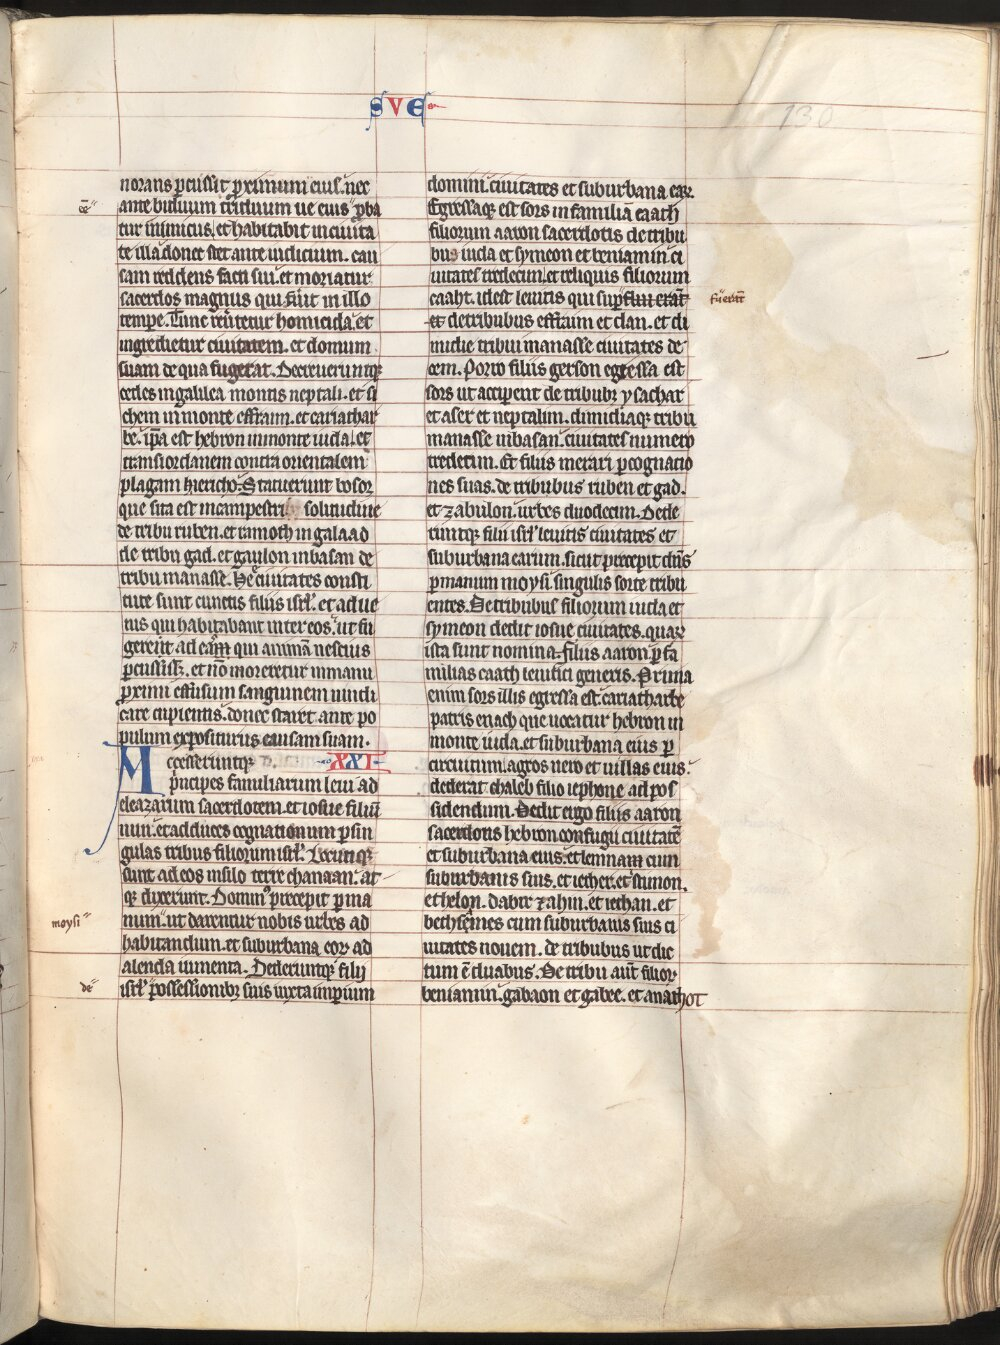 SVE
130
norans ꝑcussit ꝓximum eius. nec
ante biduum triduum ue eius ꝓba
tur inimicus. et habitabit in ciuita
te illa donec stet ante iudicium. cau
sam reddens facti sui. et moriatur
sacerdos magnus qui fuit in illo
tempe. Tunc reuertetur homicida. et
ingredietur ciuitatem. et domum
suam de qua fugerat. Decreueruntqꝫ
cedes in galilea montis neptali. et si
chem in monte effraim. et cariathar
be. ip̄a est hebron in monte iuda. et
trans iordanem contra orientalem
plagam hiericho. Statuerunt bosor
que sita est in campestri solitudine
de tribu ruben. et ramoth in galaad
de tribu gad. et gaulon in basan de
tribu manasse. He ciuitates consti
tute sunt cunctis filiis isrl̄. et adue
nis qui habitabant inter eos. ut fu
geret ad eam qui animā nescius
ꝑcussisset. et nō moreretur in manu
ꝓximi effusum sanguinem uindi
care cupientis. donec staret ante po
pulum expositurus causam suam.
Accesseruntqꝫ XXI
principes familiarum leui ad
eleazarum sacerdotem. et iosue filiū
nun. et ad duces cognationum ꝑ sin
gulas tribus filiorum isrl̄. Locutiqꝫ
sunt ad eos in silo terre chanaan. at
qꝫ dixerunt. Dominꝰ precepit ꝑ ma
num. ut darentur nobis urbes ad
habitandum. et suburbana eoꝝ ad
alenda iumenta. Dederuntqꝫ filii
isrl̄ possessionibꝫ suis iuxta imꝑium
ēē
moysi
de
domini. ciuitates et suburbana eaꝝ.
Egressaqꝫ est sors in familiā caath
filiorum aaron sacerdotis de tribu
bus iuda et symeon et beniamin ci
uitates tredecim. et reliquis filiorum
caaht. idest leuitis qui suꝑfluu erāt
et de tribubus effraim et dan. et di
midie tribui manasse ciuitates de
cem. Porro filiis gerson egressa est
sors ut acciperent de tribubꝫ ysachar
et aser et neptalim. dimidiaqꝫ tribu
manasse in basan. ciuitates numero
tredecim. Et filiis merari ꝑ cognatio
nes suas. de tribubus ruben et gad.
et zabulon. urbes duodecim. Dede
runtqꝫ filii isrl̄ leuitis ciuitates et
suburbana earum. sicut precepit dn̄s
ꝑ manum moysi singulis sorte tribu
entes. De tribubus filiorum iuda et
symeon dedit iosue ciuitates. quaꝝ
ista sunt nomina. filiis aaron ꝑ fa
milias caath leuitici generis. Prima
enim sors illis egressa est. cariatharbe
patris enach que uocatur hebron in
monte iuda. et suburbana eius ꝑ
circuitum. agros uero et uillas eius
dederat chaleb filio iephone ad pos
sidendum. Dedit ergo filiis aaron
sacerdotis hebron confugii ciuitatē
et suburbana eius. et lemnam cum
suburbanis suis. et iether. et stimon.
et helon. dabir et ahin. et iethan. et
bethsemes cum suburbanis suis ci
uitates nouem. de tribubus ut dic
tum ē duabus. De tribu aut̄ filioꝝ
beniamin. gabaon et gabee. et anathot
fuerāt